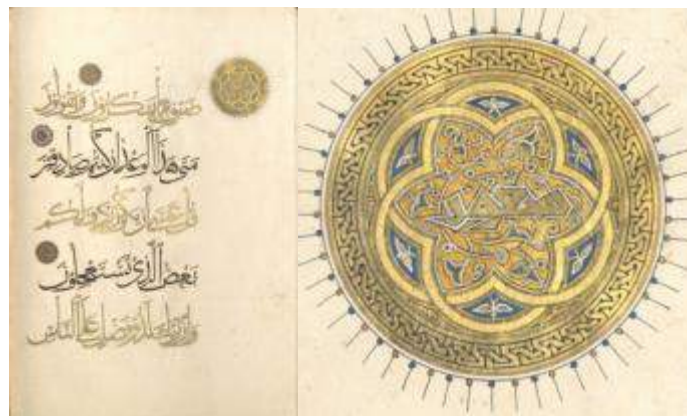 ضيق مما يمكرون ويقولون
متى هذا الوعد إن كنتم صادقين
قل عسى أن يكون ردف لكم
بعض الذي تستعجلون
وإن ربك لذو فضل على الناس